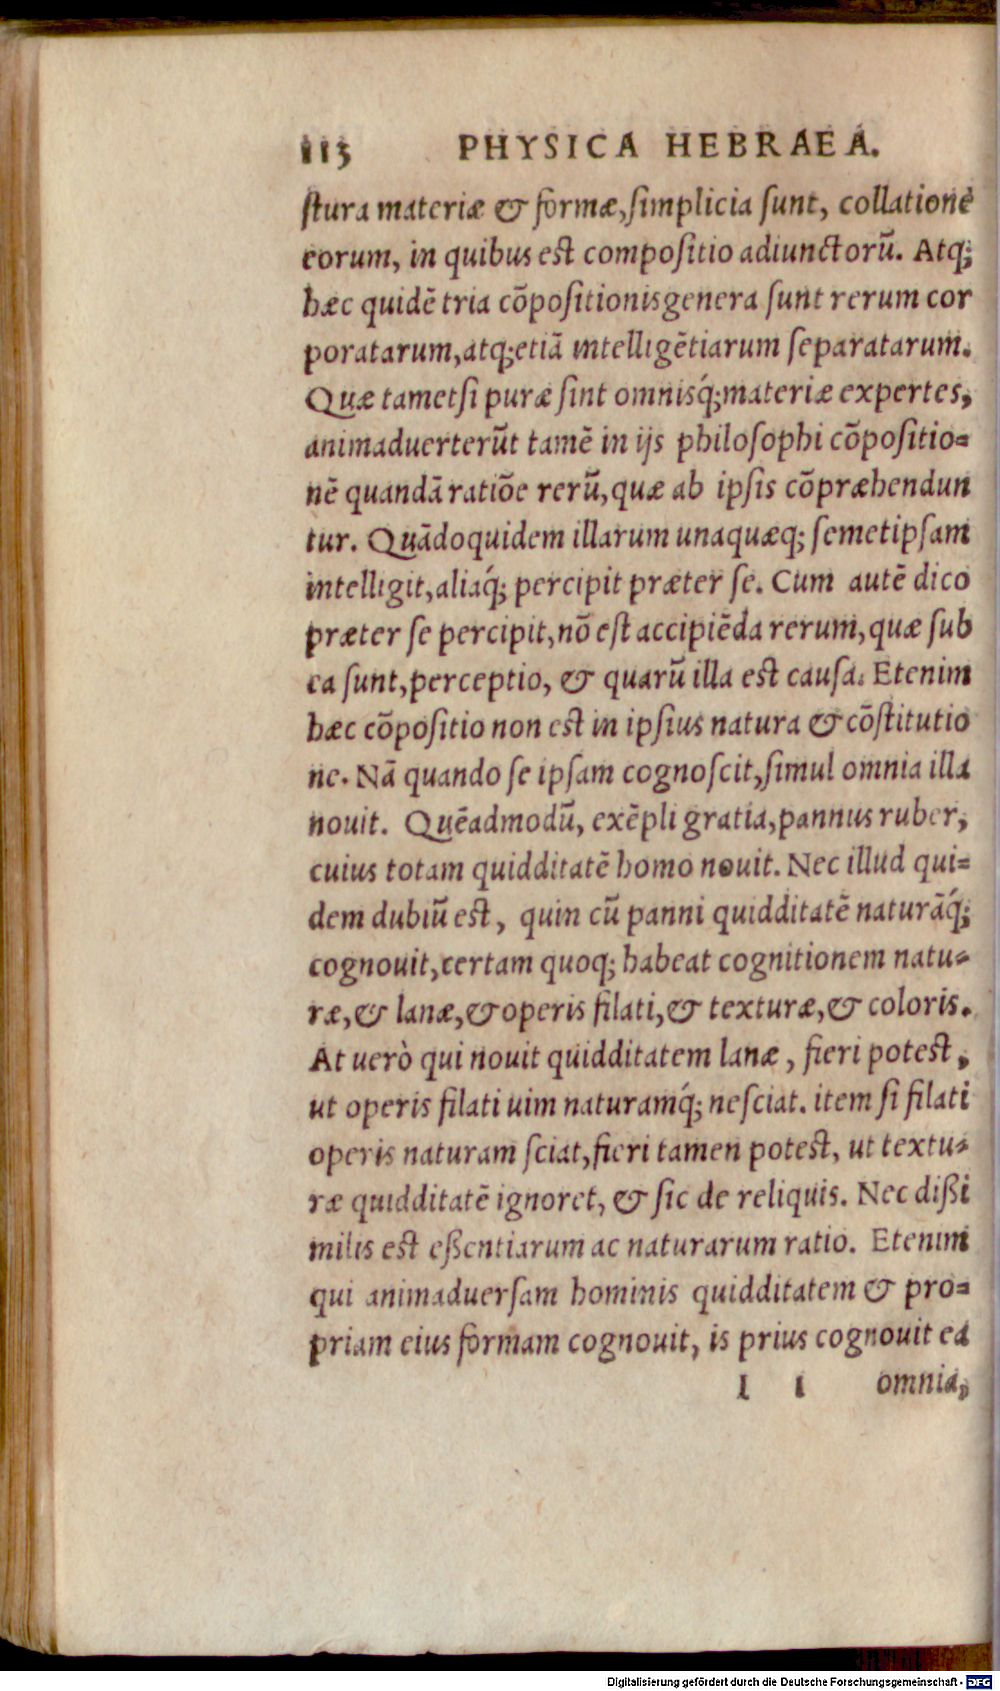 113 PHYSICA HEBRAEA.
ſtura materiæ & formæ, ſimplicia ſunt, collationē
eorum, in quibus eſt compoſitio adiunctorũ. Atq;
hæc quidẽ tria cõpoſitionis genera ſunt rerum cor
poratarum, atq; etiã intelligẽtiarum ſeparatarum.
Quæ tametſi puræ ſint omnisq́; materiæ expertes,
animaduerterũt tamẽ in ijs philoſophi cõpoſitio=
nẽ quandã ratiõe rerũ, quæ ab ipſis cõpræhendun
tur. Quãdoquidem illarum unaquæq; ſemetipſam
intelligit, aliaq́; percipit præter ſe. Cum autẽ dico
præter ſe percipit, nõ eſt accipiẽda rerum, quæ ſub
ea ſunt, perceptio, & quarũ illa eſt cauſa. Etenim
hæc cõpoſitio non eſt in ipſius natura & cõſtitutio
ne. Nã quando ſe ipſam cognoſcit, ſimul omnia illa
nouit. Quẽadmodũ, exẽpli gratia, pannus ruber,
cuius totam quidditatẽ homo nouit. Nec illud qui=
dem dubiũ eſt, quin cũ panni quidditatẽ naturãq́;
cognouit, certam quoq; habeat cognitionem natu=
ræ, & lanæ, & operis filati, & texturæ, & coloris.
At uerò qui nouit quidditatem lanæ, fieri poteſt,
ut operis filati uim naturamq́; neſciat. item ſi filati
operis naturam ſciat, fieri tamen poteſt, ut textu=
ræ quidditatẽ ignoret, & ſic de reliquis. Nec dißi
milis eſt eßentiarum ac naturarum ratio. Etenim
qui animaduerſam hominis quidditatem & pro=
priam eius formam cognouit, is prius cognouit ea
I 1 omnia,
Digitalisierung gefördert durch die Deutsche Forschungsgemeinschaft - DFG